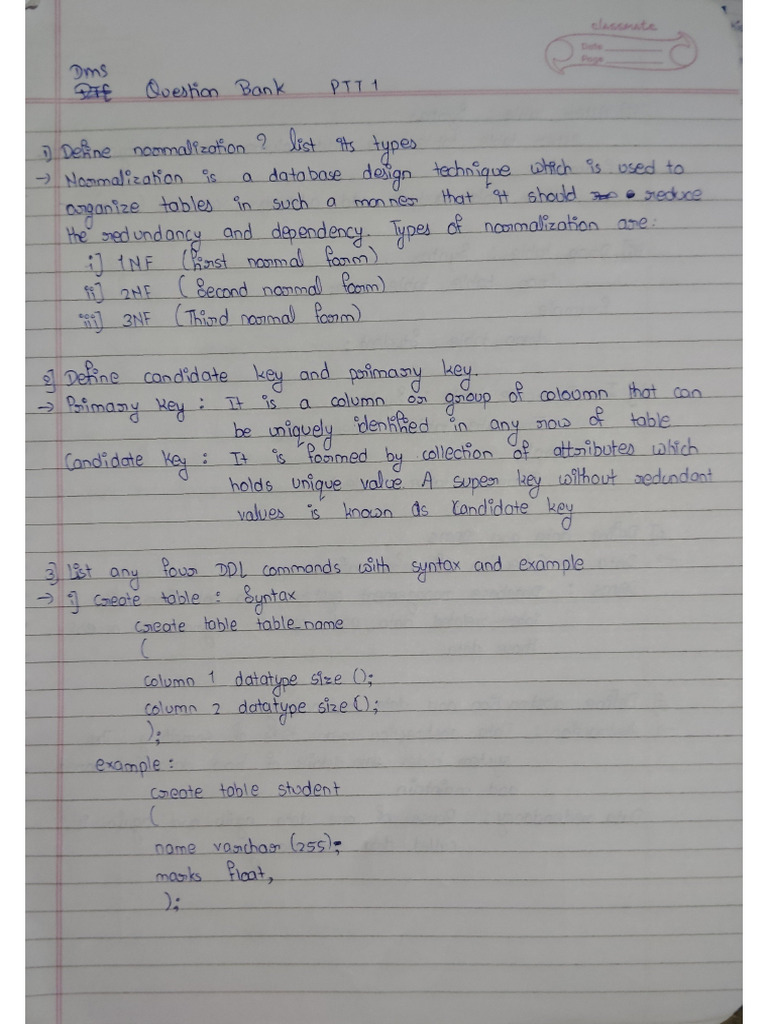 classmate
Date
Page
DMS
Question Bank PTT 1
1) Define normalization? list its types
→ Normalization is a database design technique which is used to
organize tables in such a manner that it should reduce
the redundancy and dependency. Types of normalization are:
i] 1NF (first normal form)
ii] 2NF (Second normal form)
iii] 3NF (Third normal form)
2) Define candidate key and primary key.
→ Primary key : It is a column or group of coloumn that can
be uniquely identified in any row of table
Candidate key : It is formed by collection of attributes which
holds unique value. A super key without redundant
values is known as candidate key
3) List any four DDL commands with syntax and example
→ i] create table : Syntax
create table table_name
(
column 1 datatype size ();
column 2 datatype size ();
);
example :
create table student
(
name varchar (255);
marks float,
);